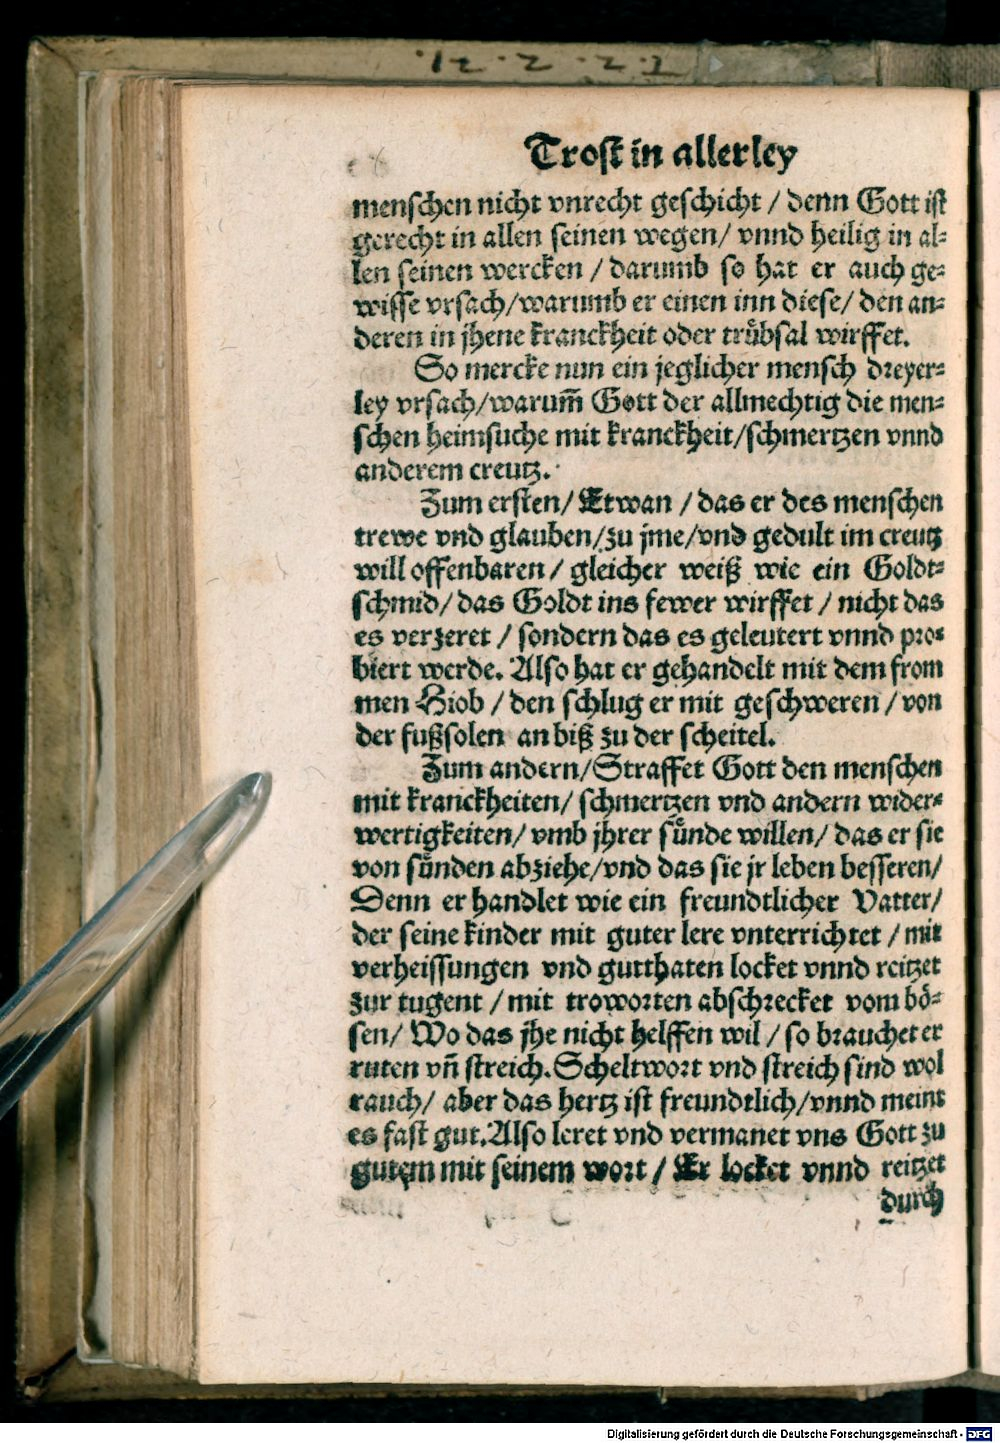 12.2.2.2
Trost in allerley
menschen nicht vnrecht geschicht / denn Gott ist
gerecht in allen seinen wegen / vnnd heilig in al⸗
len seinen wercken / darumb so hat er auch ge⸗
wisse vrsach / warumb er einen inn diese / den an⸗
deren in jhene kranckheit oder truͤbsal wirffet.
So mercke nun ein jeglicher mensch dreyer⸗
ley vrsach / warum̃ Gott der allmechtig die men⸗
schen heimsuche mit kranckheit / schmertzen vnnd
anderem creutz.
Zum ersten / Etwan / das er des menschen
trewe vnd glauben / zu jme / vnd gedult im creutz
will offenbaren / gleicher weiß wie ein Goldt⸗
schmid / das Goldt ins fewer wirffet / nicht das
es verzeret / sondern das es geleutert vnnd pro⸗
biert werde. Also hat er gehandelt mit dem from
men Hiob / den schlug er mit geschweren / von
der fußsolen an biß zu der scheitel.
Zum andern / Straffet Gott den menschen
mit kranckheiten / schmertzen vnd andern wider⸗
wertigkeiten / vmb jhrer suͤnde willen / das er sie
von suͤnden abziehe / vnd das sie jr leben besseren /
Denn er handlet wie ein freundtlicher Vatter /
der seine kinder mit guter lere vnterrichtet / mit
verheissungen vnd gutthaten locket vnnd reitzet
zur tugent / mit troworten abschrecket vom boͤ⸗
sen / Wo das jhe nicht helffen wil / so brauchet er
ruten vñ streich. Scheltwort vnd streich sind wol
rauch / aber das hertz ist freundtlich / vnnd meint
es fast gut. Also leret vnd vermanet vns Gott zu
gutem mit seinem wort / Er locket vnnd reitzet
durch
Digitalisierung gefördert durch die Deutsche Forschungsgemeinschaft - DFG